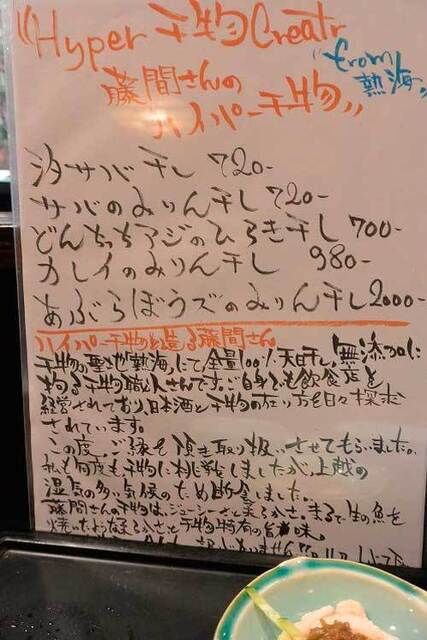 "Hyper干物Creatr
藤間さんの
"from
熱海"
ハイパー干物"
汐サバ干し 720-
サバのみりん干し 720-
どんちっちアジのひらき干し 700-
カレイのみりん干し 980-
あぶらぼうズのみりん干し 2000-
ハイパー干物を造る藤間さん
干物の聖地熱海にて全量100%天日干し、無添加に
拘る干物職人さんです。ご自身も飲食店を
経営されており日本酒と干物の在り方を日々探求
されています。
この度、ご縁を頂き取り扱いさせてもらいました。
私も何度も干物に挑戦しましたが、上越の
湿気の多い気候のため断念しました。
藤間さんの干物は、ジューシーさと柔らかさ。まるで生の魚を
焼いたような柔らかさと干物特有の旨味。